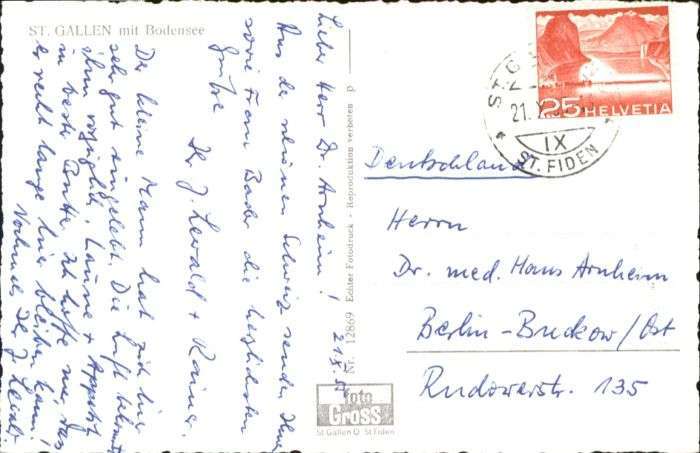 ST. GALLEN mit Bodensee
Lieber Herr Dr. Arnheim!
21.X.
Aus der schönen Schweiz senden Ihnen
sowie Frau Bader die herzlichsten
Grüße
Ihr J. Lewald + Rainer.
Der kleine Mann hat sich hier
sehr gut eingelebt. Die Luft bekommt
ihm vorzüglich. Laune + Appetit
in bester Butter. Ich hoffe nur, das
er recht lange hier bleiben kann!
Nochmals Ihr J. Lewald
Nr. 12869 Echter Fotodruck - Reproduktion verboten p
foto
Gross
St Gallen O St Fiden
25 HELVETIA
ST. G
21. X
IX
ST. FIDEN
Deutschland
Herrn
Dr. med. Hans Arnheim
Berlin-Buckow/Ost
Rudowerstr. 135